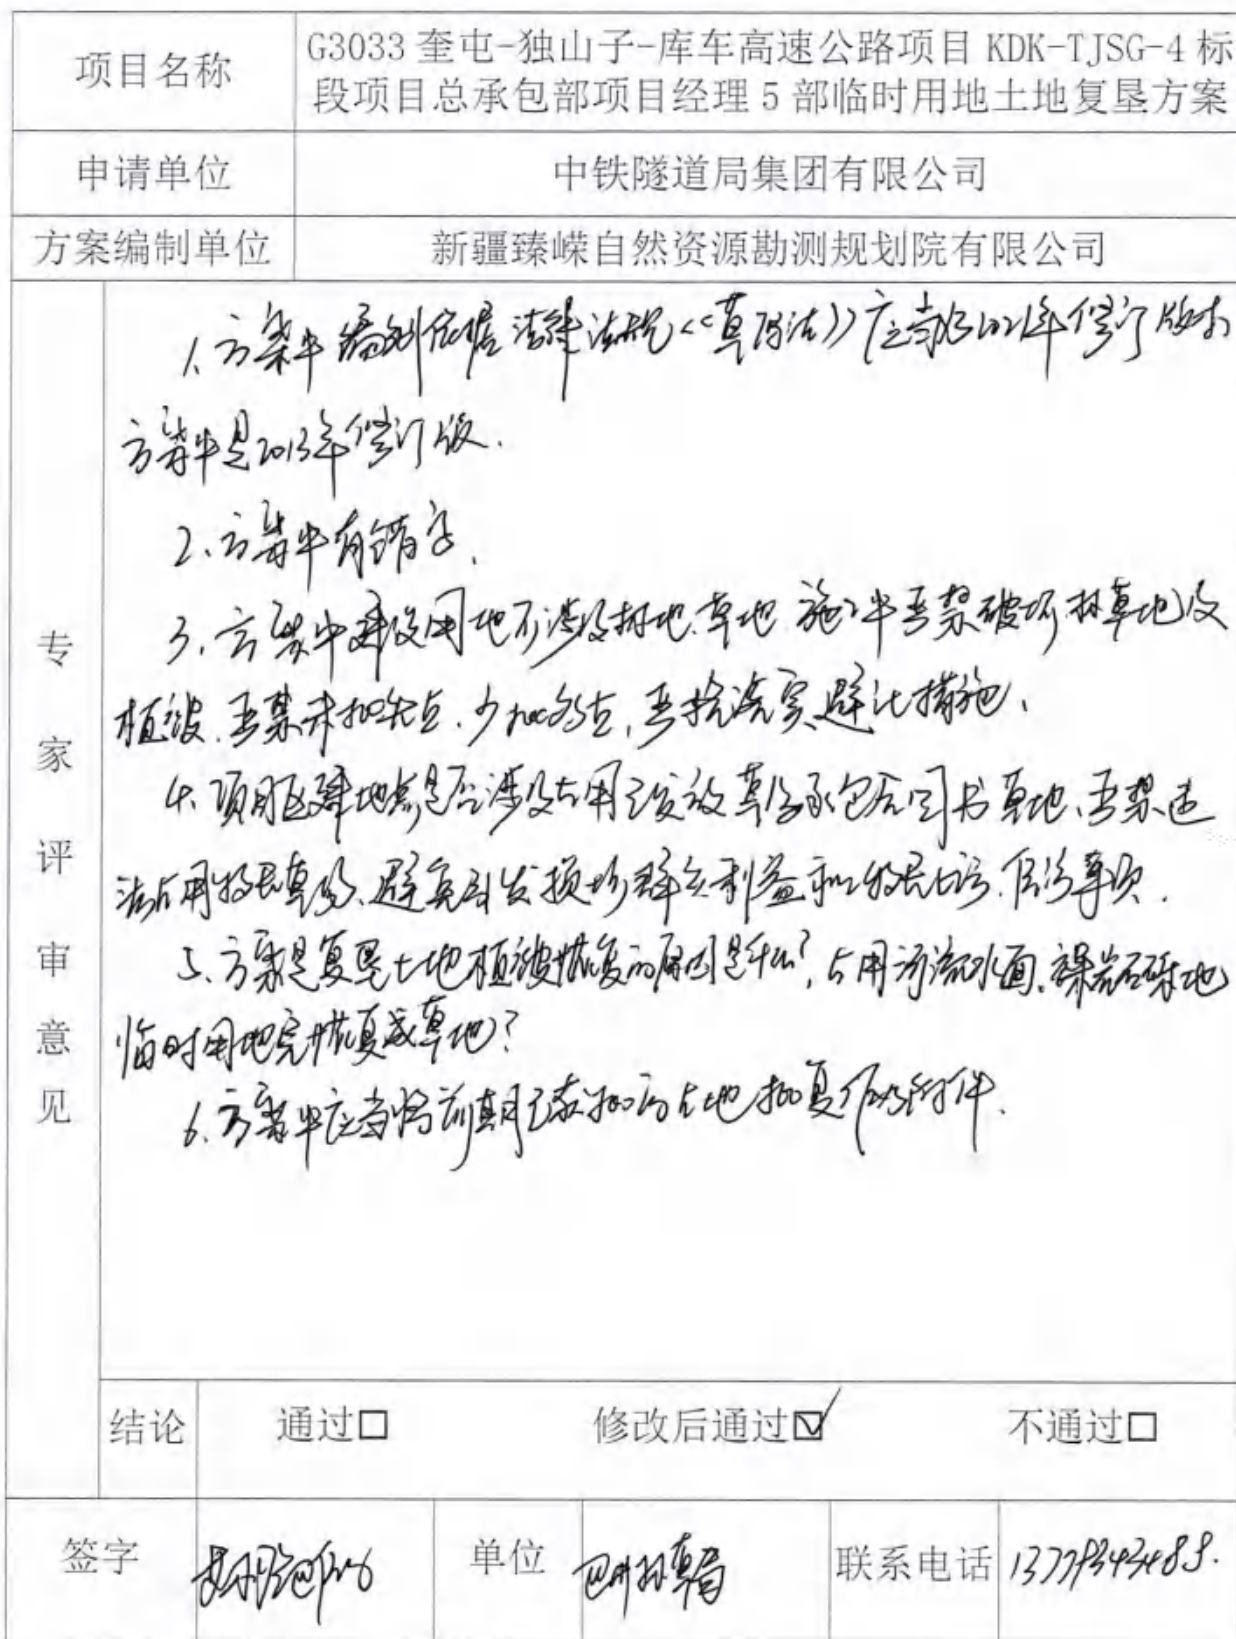 项目名称
G3033 奎屯-独山子-库车高速公路项目 KDK-TJSG-4 标
段项目总承包部项目经理 5 部临时用地土地复垦方案
申请单位
中铁隧道局集团有限公司
方案编制单位
新疆臻嵘自然资源勘测规划院有限公司
专家评审意见
1、方案中编制依据法律法规《《草原法》》应当为2021年修订版本
方案中是2013年修订版.
2、方案中有错字.
3、方案中建设用地不涉及林地、草地 施工中严禁破坏林草地及
植被、严禁未批先占、少批多占,严格落实避让措施、
4、项目区建地点是否涉及占用已发放草场承包合同书草地、严禁违
法占用牧民草场、避免引发损坏群众利益和牧民上访、信访事项.
5、方案是复垦土地植被恢复的原因是什么?,占用河流水面、裸岩石砾地
临时用地完恢复成草地?
6、方案中应当将前期已获批的占地批复作为附件.
结论
通过□
修改后通过☑
不通过□
签字
单位
巴州林草局
联系电话
13779343488.